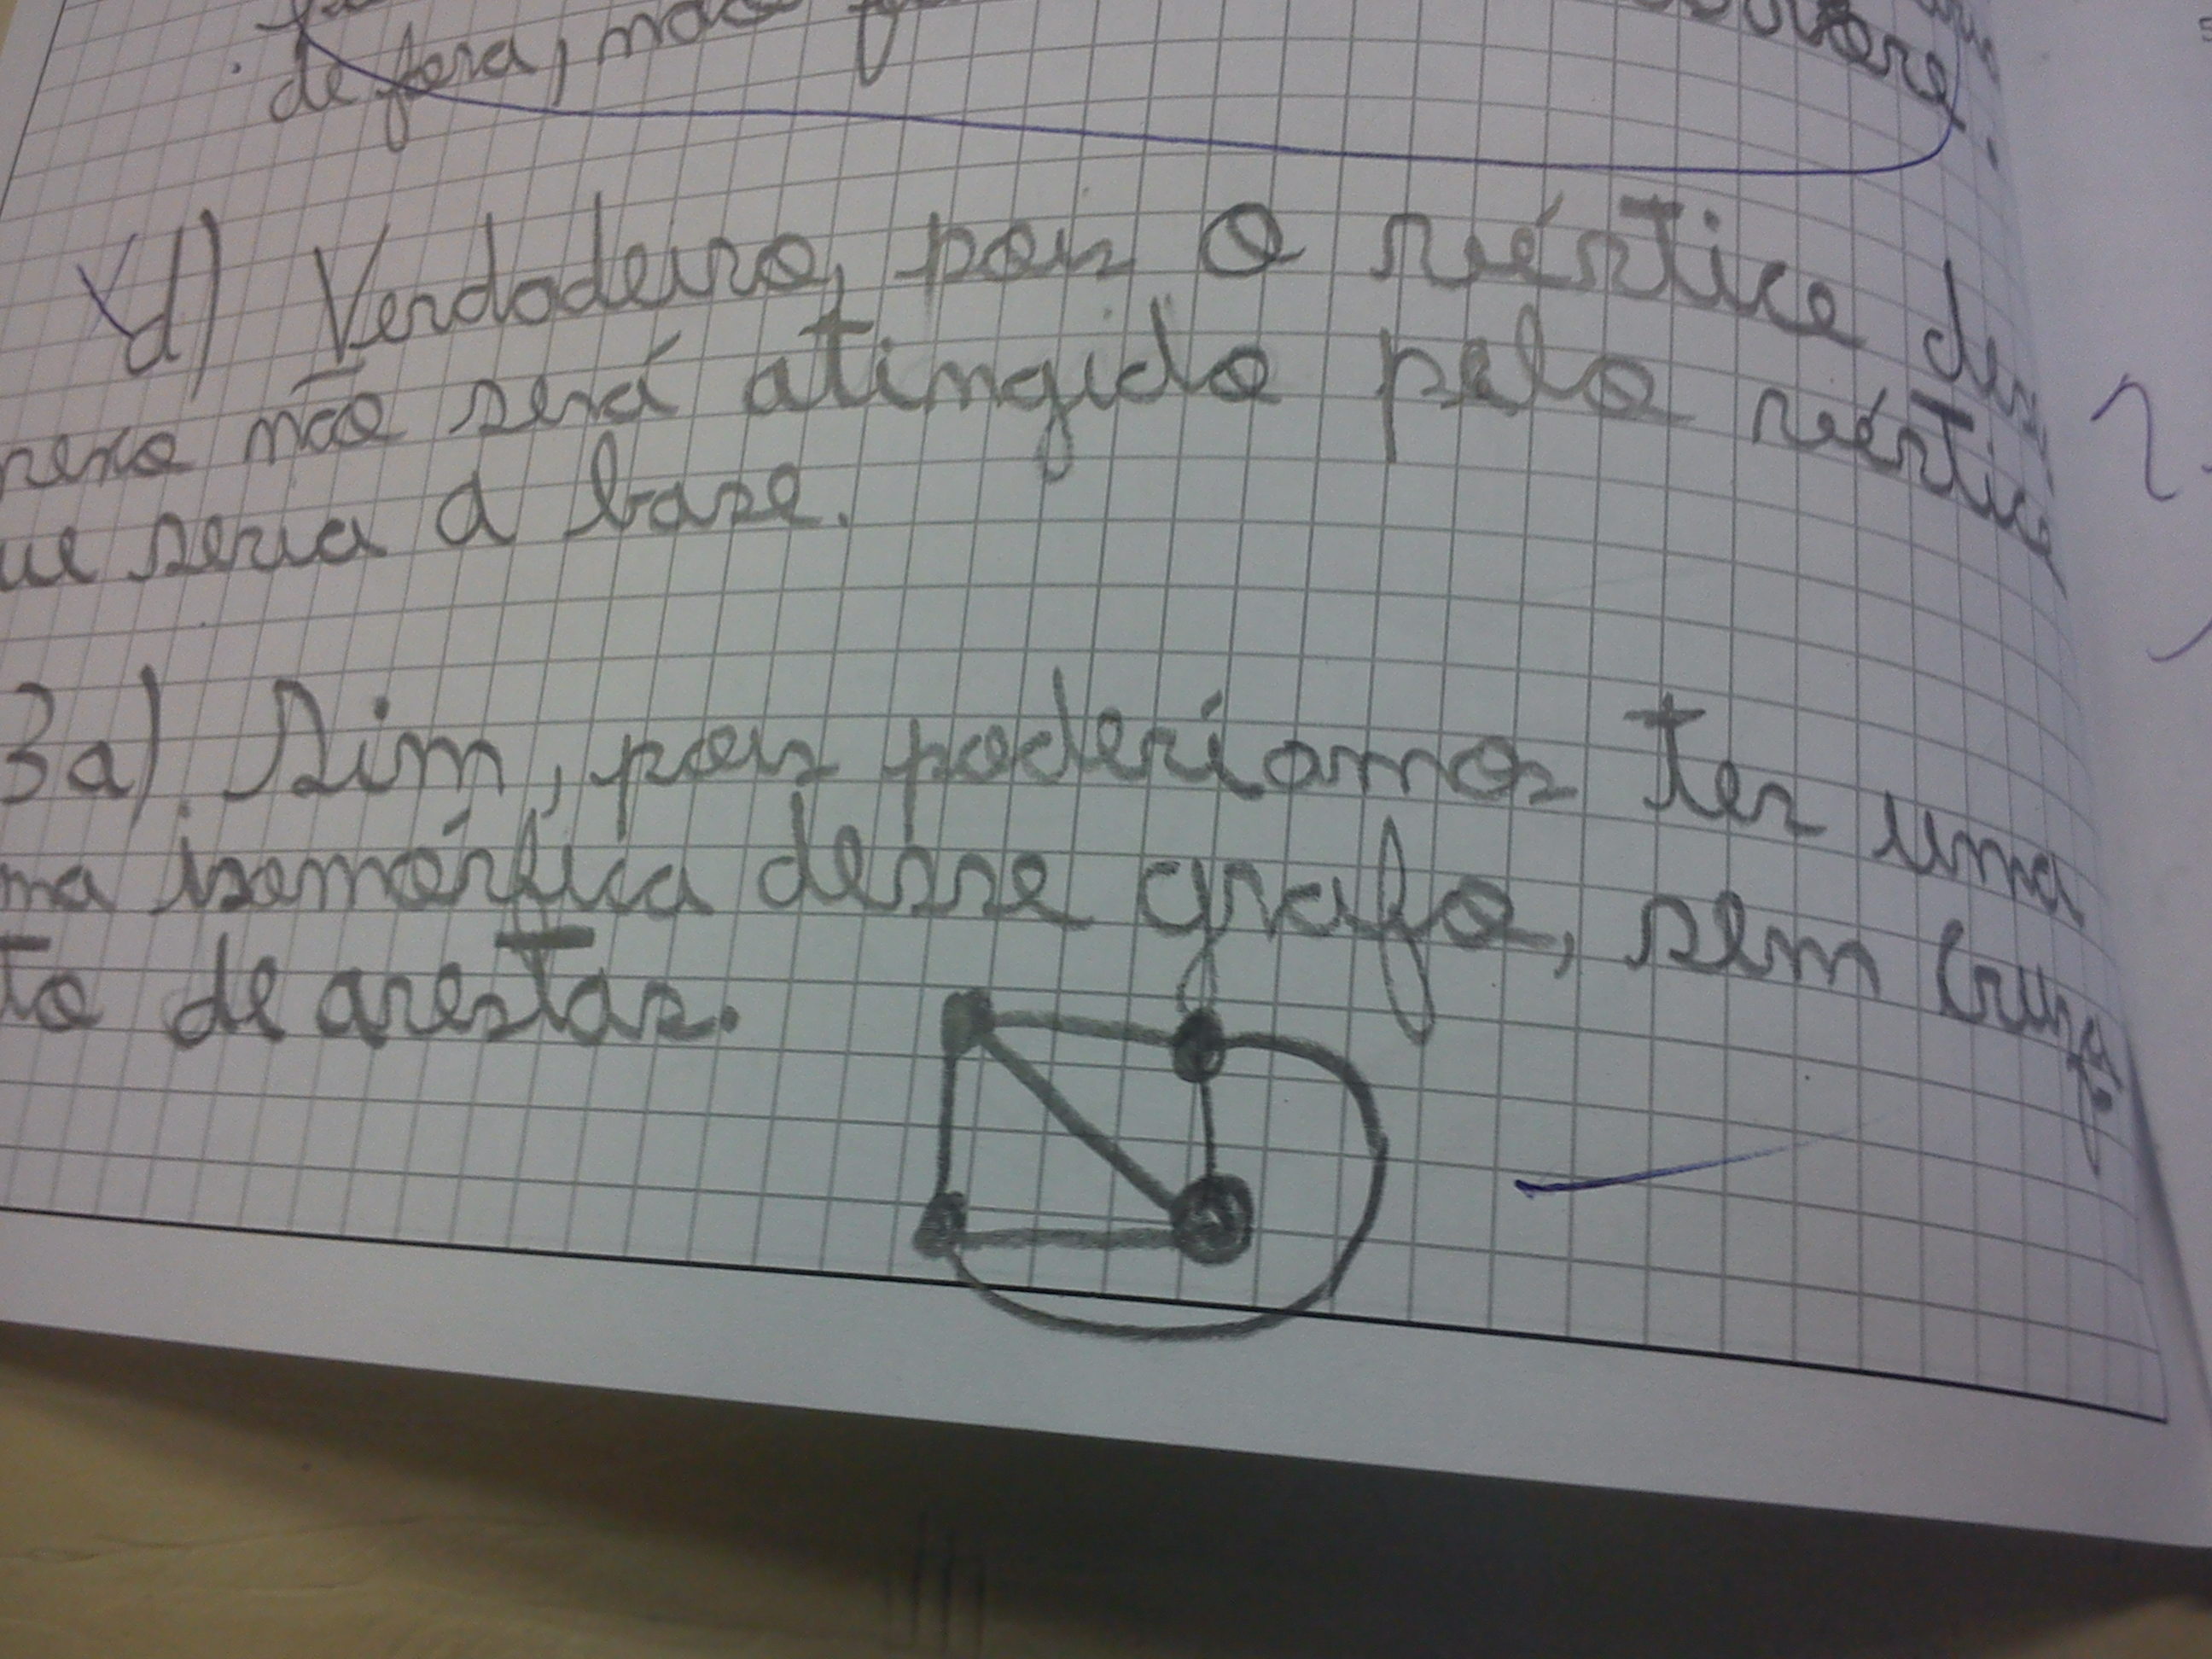 de fora, não
d) Verdadeiro, pois o vértice des
nexo não será atingido pelo vértice
ue seria a base.
3a) Sim, pois poderíamos ter uma
ma isomórfica desse grafo, sem cruza
to de arestas.